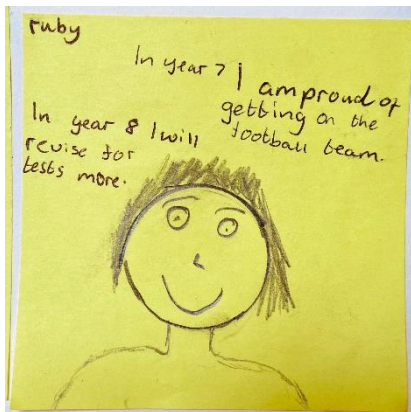 ruby
In year 7 I am proud of
getting on the
football team.
In year 8 I will
revise for
tests more.